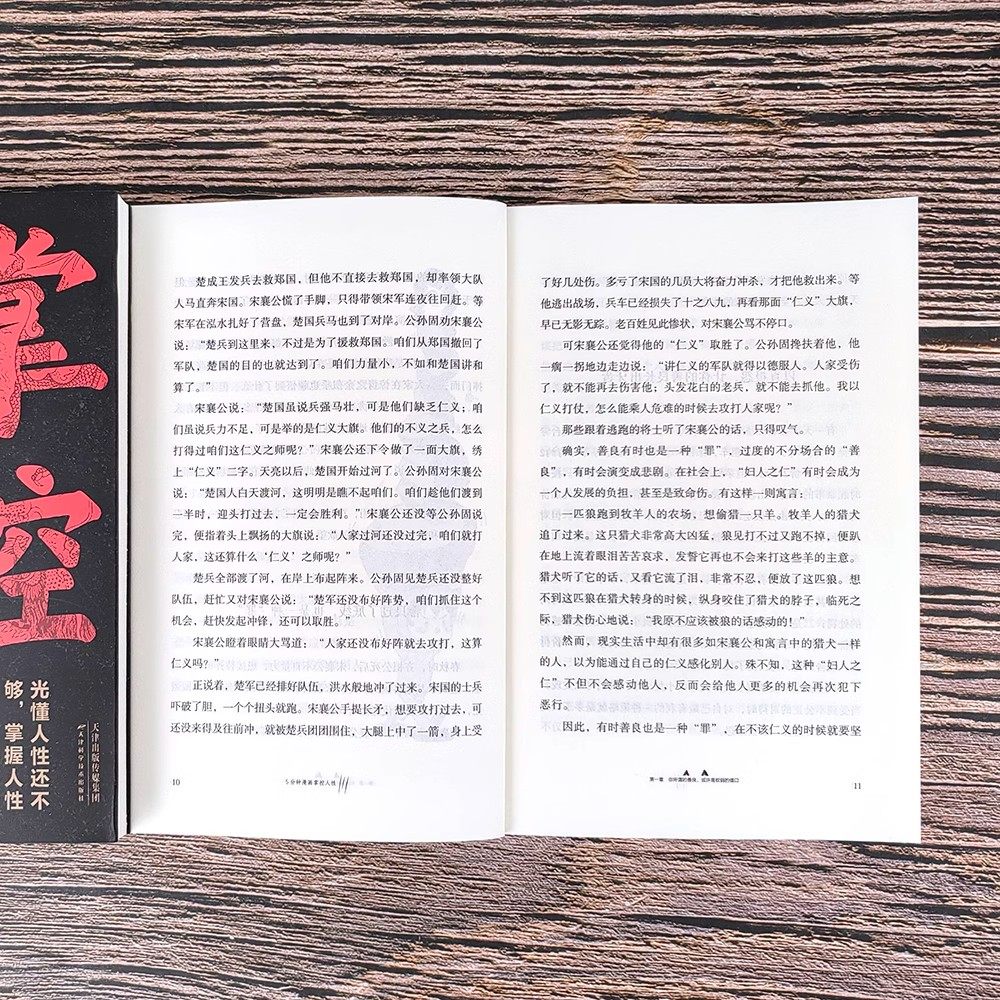 掌控
光懂人性还不
够，掌握人性
天津出版传媒集团
天津科学技术出版社
楚成王发兵去救郑国，但他不直接去救郑国，却率领大队
人马直奔宋国。宋襄公慌了手脚，只得带领宋军连夜往回赶。等
宋军在泓水扎好了营盘，楚国兵马也到了对岸。公孙固劝宋襄公
说：“楚兵到这里来，不过是为了援救郑国。咱们从郑国撤回了
军队，楚国的目的也就达到了。咱们力量小，不如和楚国讲和
算了。”
宋襄公说：“楚国虽说兵强马壮，可是他们缺乏仁义；咱
们虽说兵力不足，可是举的是仁义大旗。他们的不义之兵，怎么
打得过咱们这仁义之师呢？”宋襄公还下令做了一面大旗，绣
上“仁义”二字。天亮以后，楚国开始过河了。公孙固对宋襄公
说：“楚国人白天渡河，这明明是瞧不起咱们。咱们趁他们渡到
一半时，迎头打过去，一定会胜利。”宋襄公还没等公孙固说
完，便指着头上飘扬的大旗说：“人家过河还没过完，咱们就打
人家，这还算什么‘仁义’之师呢？”
楚兵全部渡了河，在岸上布起阵来。公孙固见楚兵还没整好
队伍，赶忙又对宋襄公说：“楚军还没布好阵势，咱们抓住这个
机会，赶快发起冲锋，还可以取胜。”
宋襄公瞪着眼睛大骂道：“人家还没布好阵就去攻打，这算
仁义吗？”
正说着，楚军已经排好队伍，洪水般地冲了过来。宋国的士兵
吓破了胆，一个个扭头就跑。宋襄公手提长矛，想要攻打过去，可
还没来得及往前冲，就被楚兵团团围住，大腿上中了一箭，身上受
10
5分钟漫画掌控人性
了好几处伤。多亏了宋国的几员大将奋力冲杀，才把他救出来。等
他逃出战场，兵车已经损失了十之八九，再看那面“仁义”大旗，
早已无影无踪。老百姓见此惨状，对宋襄公骂不停口。
可宋襄公还觉得他的“仁义”取胜了。公孙固搀扶着他，他
一瘸一拐地边走边说：“讲仁义的军队就得以德服人。人家受伤
了，就不能再去伤害他；头发花白的老兵，就不能去抓他。我以
仁义打仗，怎么能乘人危难的时候去攻打人家呢？”
那些跟着逃跑的将士听了宋襄公的话，只得叹气。
确实，善良有时也是一种“罪”，过度的不分场合的“善
良”，有时会演变成悲剧。在社会上，“妇人之仁”有时会成为
一个人发展的负担，甚至是致命伤。有这样一则寓言：
一匹狼跑到牧羊人的农场，想偷猎一只羊。牧羊人的猎犬
追了过来。这只猎犬非常高大凶猛，狼见打不过又跑不掉，便趴
在地上流着眼泪苦苦哀求，发誓它再也不会来打这些羊的主意。
猎犬听了它的话，又看它流了泪，非常不忍，便放了这匹狼。想
不到这匹狼在猎犬转身的时候，纵身咬住了猎犬的脖子，临死之
际，猎犬伤心地说：“我原不应该被狼的话感动的！”
然而，现实生活中却有很多如宋襄公和寓言中的猎犬一样
的人，以为能通过自己的仁义感化别人。殊不知，这种“妇人之
仁”不但不会感动他人，反而会给他人更多的机会再次犯下
恶行。
因此，有时善良也是一种“罪”，在不该仁义的时候就要坚
第一章 你所谓的善良，或许是软弱的借口
11